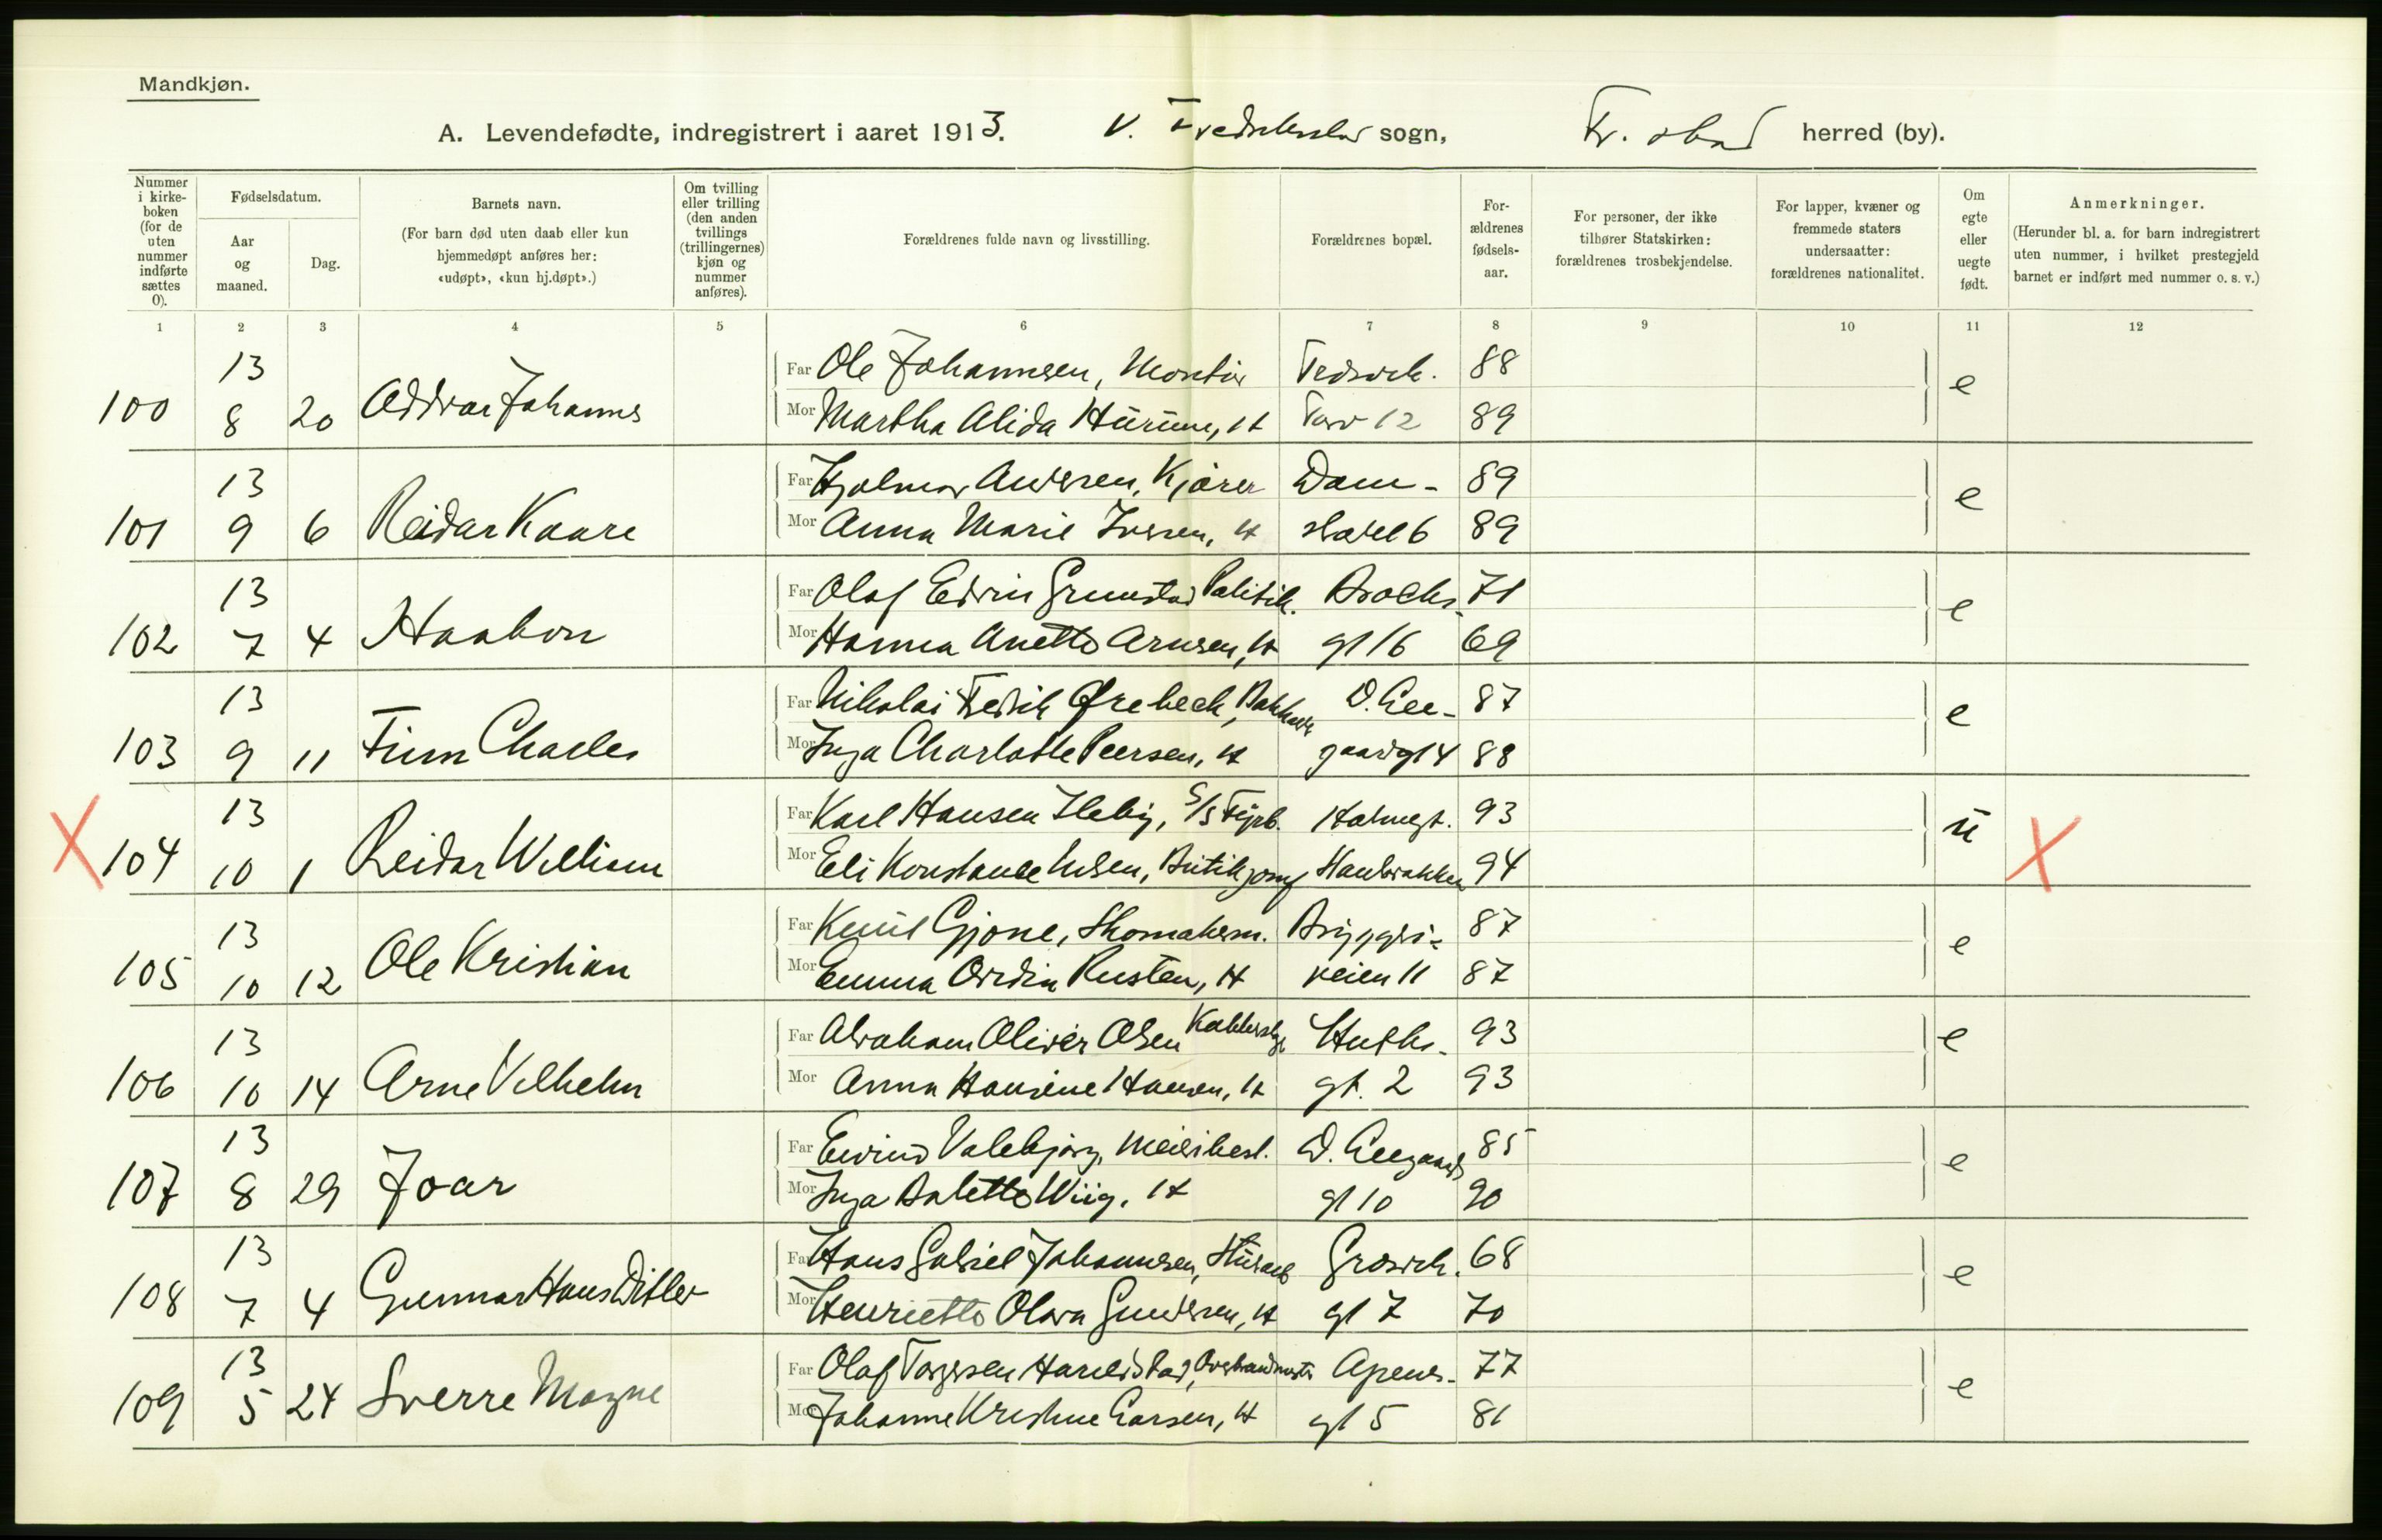 Mandkjøn.
A. Levendefødte, indregistrert i aaret 1913. V. sogn, Fr. stad herred (by).
Nummer i kirke-boken (for de uten nummer indførte sættes 0).
Fødselsdatum.
Aar og maaned.
Dag.
Barnets navn.
(For barn død uten daab eller kun hjemmedøpt anføres her: «udøpt», «kun hj.døpt».)
Om tvilling eller trilling (den anden tvillings (trillingernes) kjøn og nummer anføres).
Forældrenes fulde navn og livsstilling.
Forældrenes bopæl.
For-ældrenes fødsels-aar.
For personer, der ikke tilhører Statskirken: forældrenes trosbekjendelse.
For lapper, kvæner og fremmede staters undersaatter: forældrenes nationalitet.
Om egte eller uegte født.
Anmerkninger.
(Herunder bl. a. for barn indregistrert uten nummer, i hvilket prestegjeld barnet er indført med nummer o. s. v.)
1 2 3 4 5 6 7 8 9 10 11 12
13 Far Ole Johannsen, Montør 88
100 8 20 Oddvar Johannes Mor Martha Alida H 12 89 e
13 Far Hjalmar Andersen, Kjører Dam- 89
101 9 6 Reidar Kaare Mor Anna Marie Iversen, H 6 89 e
13 Far Olaf Edvin Grimstad Politik. Brochs- 71
102 7 4 Haakon Mor Hanna Anette Arnsen, H gt 16 69 e
13 Far Nikolai Fredrik Ørebech, O. Lee- 87
103 9 11 Finn Charles Mor Inga Charlotte Peersen, H gaardsgt 4 88 e
13 Far Karl Hansen Ileby, S/S Fyrb. Holmegt. 93
X 104 10 1 Reidar William Mor Eli Konstance Butikjomf 94 u X
13 Far Knut Gjone, Skomakerm. Bryggeri- 87
105 10 12 Ole Kristian Mor Emma Ovidia Rusten, H veien 11 87 e
13 Far Abraham Oliver Olsen Huths- 93
106 10 14 Arne Vilhelm Mor Anna Hansine Hansen, H gt. 2 93 e
13 Far Eivind Valebjørg, Meieribest. O. Leegaards 85
107 8 29 Joar Mor Inga Baletta Wiig, H gt 10 90 e
13 Far Hans Gabriel Johannsen, 68
108 7 4 Gunnar Hans Ditlev Mor Henriette Olava Gundersen, H gt 7 70 e
13 Far Olaf Torgersen Apenes- 77
109 5 24 Sverre Magne Mor Johanne Kristine Larsen, H gt 5 81 e